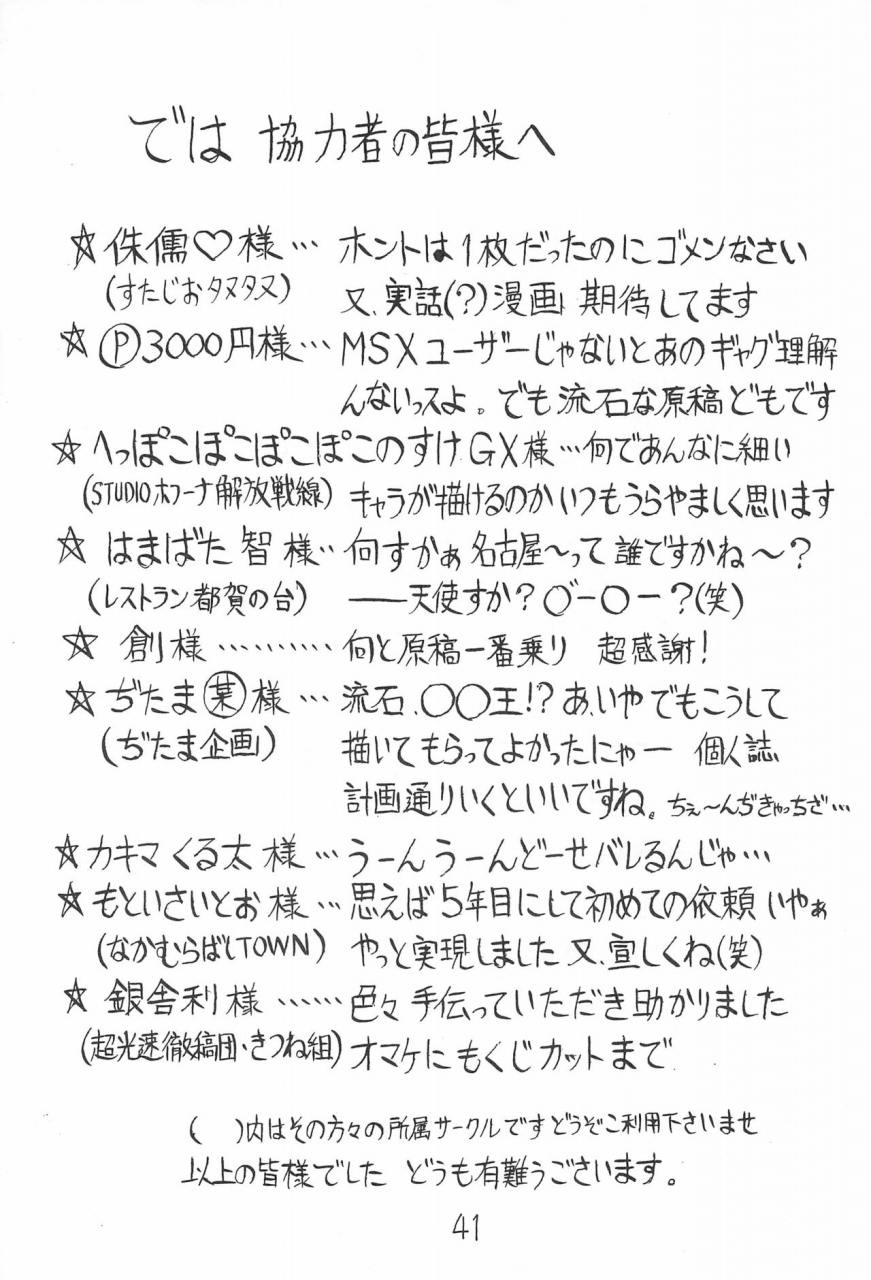 では 協力者の皆様へ
☆侏儒♡様… ホントは1枚だったのにゴメンなさい
(すたじおタヌタヌ) 又、実話(?)漫画 期待してます
☆Ⓟ3000円様… MSXユーザーじゃないとあのギャグ理解
んないっスよ。でも流石な原稿どもです
☆へっぽこぽこぽこぽこのすけGX様…何であんなに細い
(STUDIOホフーナ解放戦線) キャラが描けるのかいつもうらやましく思います
☆はまばた 智 様‥ 何すかぁ 名古屋〜って 誰ですかね〜?
(レストラン都賀の台) ――天使すか?〇゛ー〇ー?(笑)
☆ 創様………… 何と原稿一番乗り 超感謝!
☆ぢたま㋱様… 流石、〇〇王!?あ、いやでもこうして
(ぢたま企画) 描いてもらってよかったにゃー 個人誌
計画通りいくといいですね。ちぇ〜んぢきゃっちざ…
☆カキマくる太 様… うーんうーんどーせバレるんじゃ…
☆もといさいとお 様… 思えば5年目にして初めての依頼 いやぁ
(なかむらばしTOWN) やっと実現しました 又、宜しくね(笑)
☆ 銀舎利様 …… 色々手伝っていただき助かりました
(超光速徹稿団・きつね組) オマケにもくじカットまで
( )内はその方々の所属サークルです どうぞご利用下さいませ
以上の皆様でした どうも有難うございます。
41